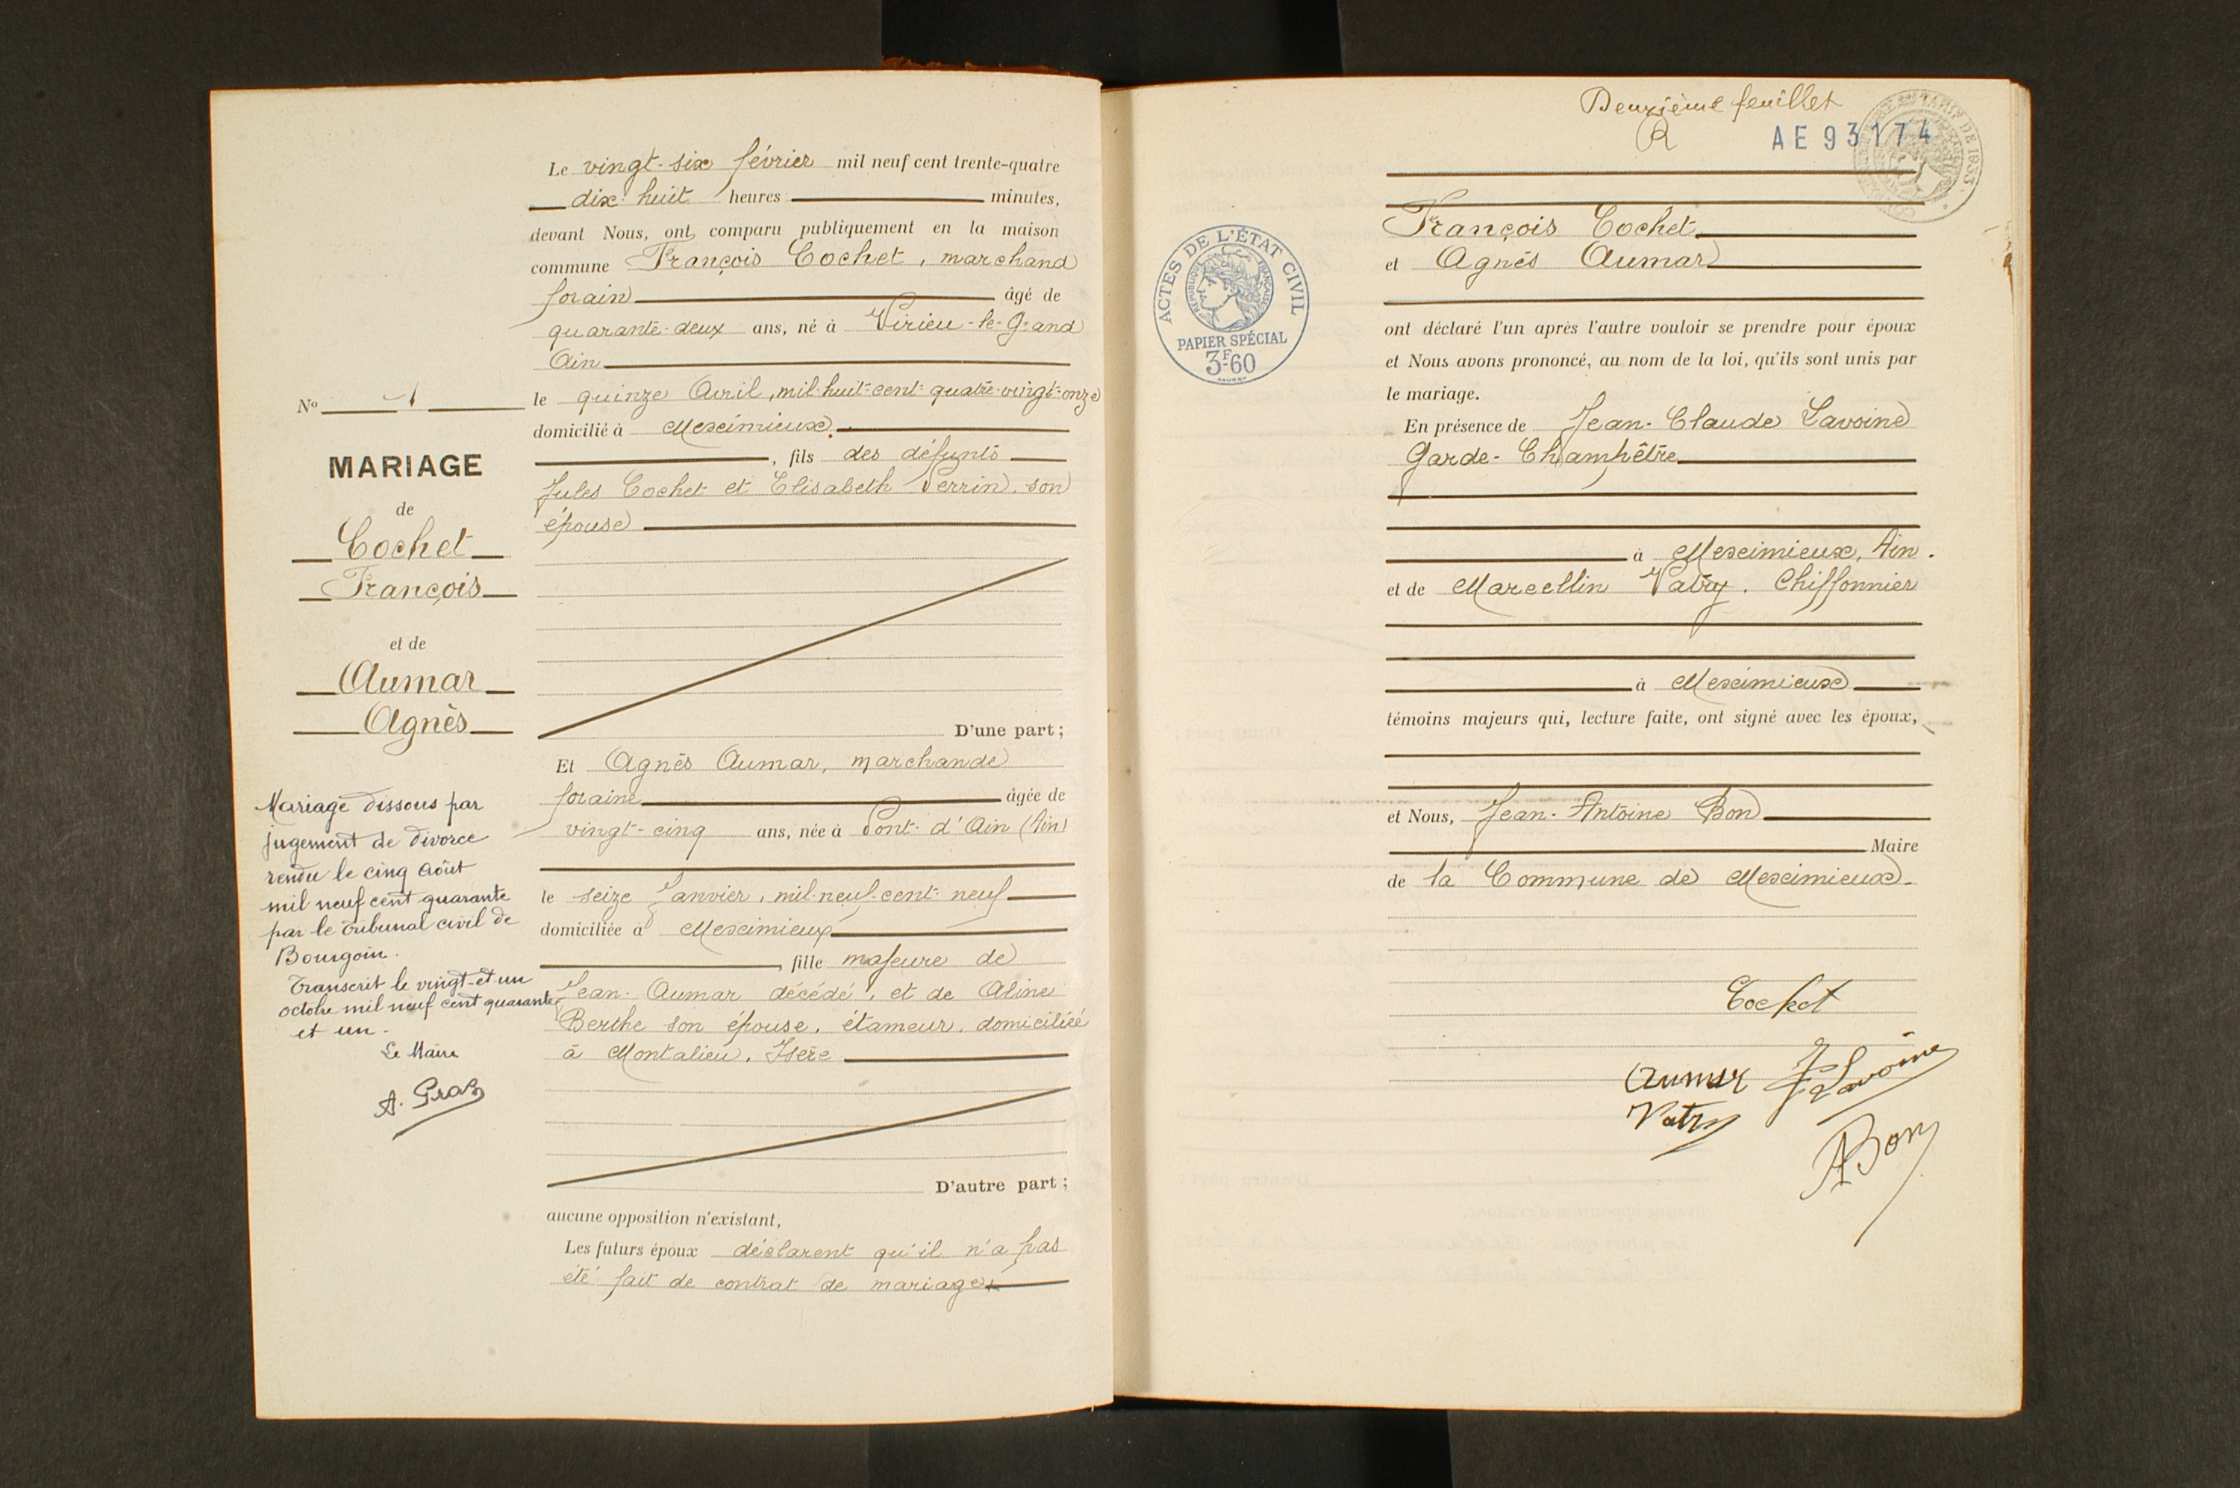 Le vingt-six février mil neuf cent trente-quatre
dix huit heures minutes,
devant Nous, ont comparu publiquement en la maison
commune François Cochet, marchand
forain âgé de
quarante-deux ans, né à Virieu-le-Grand
Ain
le quinze Avril, mil-huit-cent-quatre-vingt-onze
domicilié à Meximieux.
, fils des défunts
Jules Cochet et Elisabeth Perrin, son
épouse
D'une part;
Et Agnès Aumar, marchande
foraine âgée de
vingt-cinq ans, née à Pont-d'Ain (Ain)
le seize Janvier, mil-neuf-cent-neuf
domiciliée à Meximieux
, fille majeure de
Jean Aumar décédé, et de Aline
Berthe son épouse, étameur, domiciliée
à Montalieu, Isère
D'autre part;
aucune opposition n'existant,
Les futurs époux déclarent qu'il n'a pas
été fait de contrat de mariage
No 1
MARIAGE
de
Cochet
François
et de
Aumar
Agnès
Mariage dissous par
jugement de divorce
rendu le cinq août
mil neuf cent quarante
par le tribunal civil de
Bourgoin.
Transcrit le vingt-et-un
octobre mil neuf cent quarante
et un.
Le Maire
Deuxième feuillet
AE 93174
ACTES DE L'ÉTAT CIVIL
RÉPUBLIQUE FRANÇAISE
PAPIER SPÉCIAL
3F60
François Cochet
et Agnès Aumar
ont déclaré l'un après l'autre vouloir se prendre pour époux
et Nous avons prononcé, au nom de la loi, qu'ils sont unis par
le mariage.
En présence de Jean-Claude Lavoine
Garde-Champêtre
à Meximieux, Ain.
et de Marcellin Vatry, Chiffonnier
à Meximieux
témoins majeurs qui, lecture faite, ont signé avec les époux,
et Nous, Jean-Antoine Bon
Maire
de la Commune de Meximieux.
Cochet
Aumar Lavoine
Vatry
ABon